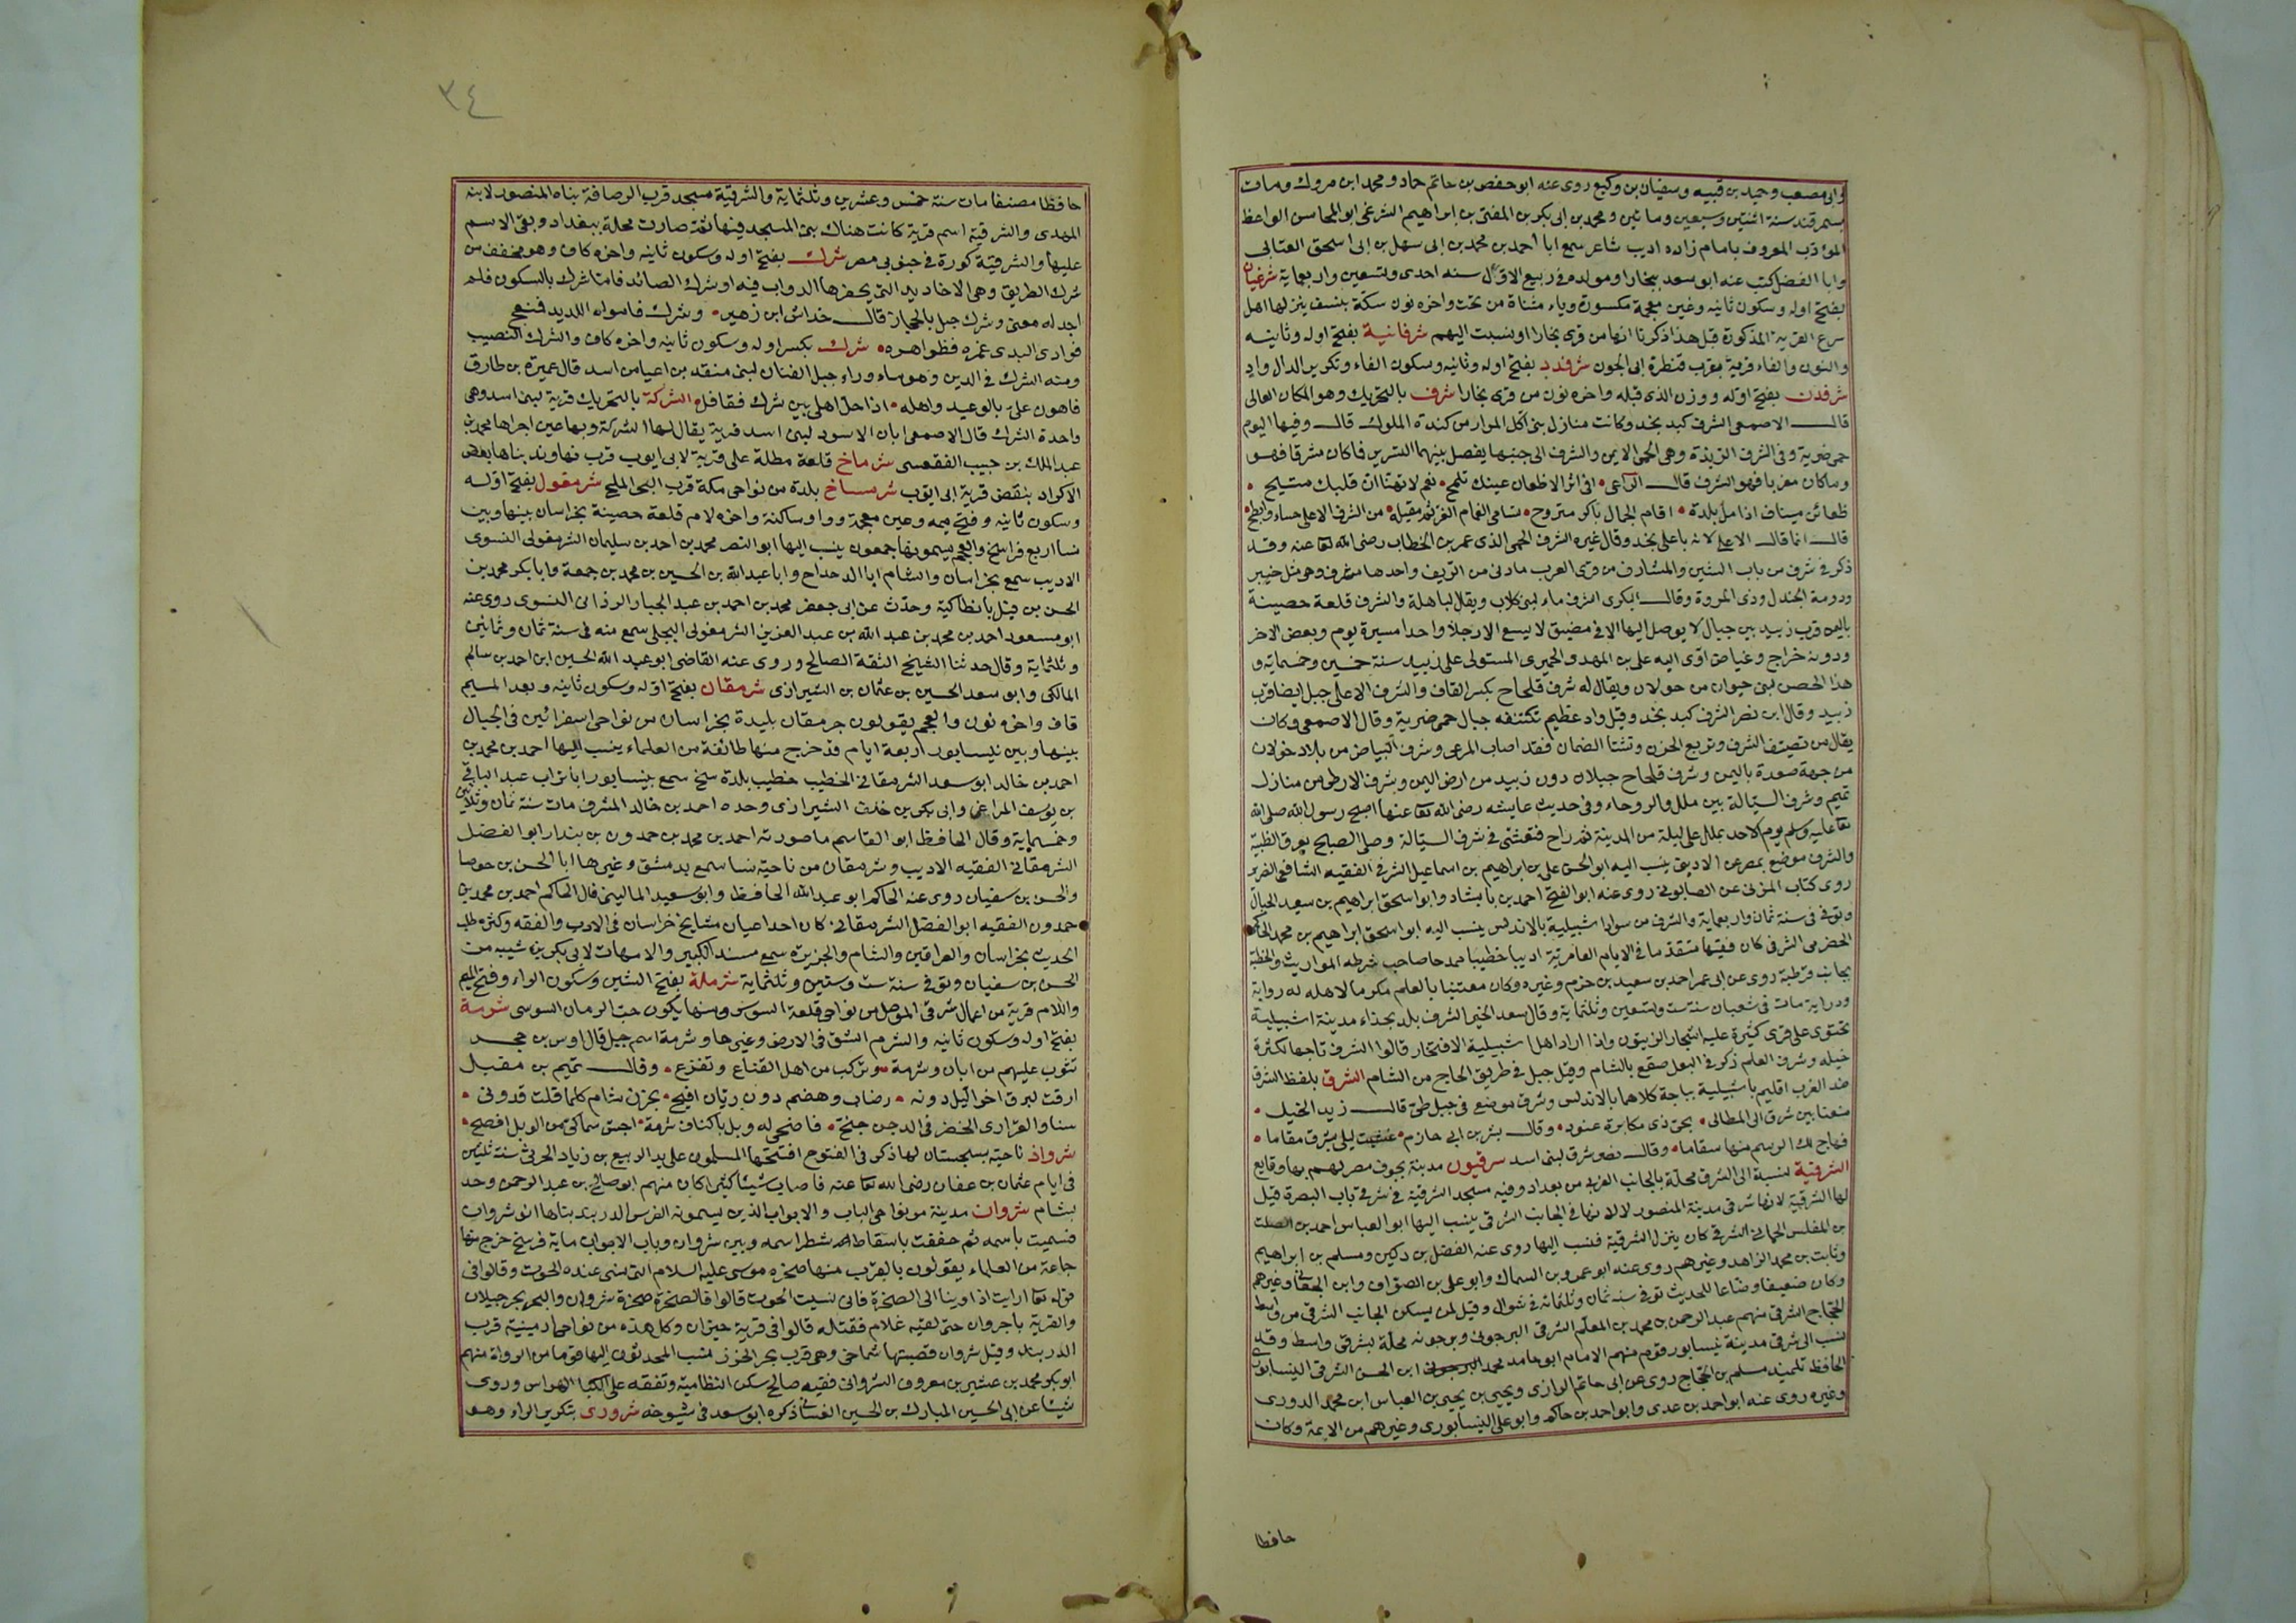 وابى مصعب وحميد بن قتيبه وسفيان بن وكيع روى عنه ابو حفص بن حاتم حماد ومحمد ابن مروك ومات
بسمرقند سنة اثنتين وسبعين وماتين ومحمد بن ابى بكر بن المفتى بن ابراهيم الشرغى ابو المحاسن الواعظ
المؤدب المعروف بامام زاده اديب شاعر سمع ابا احمد بن محمد بن ابى سهل بن ابى اسحق العتابى
وابا الفضل كتب عنه ابو سعد ببخارا ومولده فى ربيع الاول سنه احدى وتسعين واربعماية شرغيان
بفتح اوله وسكون ثانيه وغين معجمة مكسورة وياء مثناة من تحت واخره نون سكة بنسف ينزلها اهل
شرع القرية المذكورة قبل هذا ذكرنا انها من قرى بخارا ونسبت اليهم شرفانية بفتح اوله وثانيه
والنون والفاء قرية بقرب قنطرة ابى الجون شرفدد بفتح اوله وثانيه وسكون الفاء وتكرير الدال واد
شرفدن بفتح اوله ووزن الذى قبله واخره نون من قرى بخارا شرف بالتحريك وهو المكان العالى
قال الاصمعى الشرف كبد نجد وكانت منازل بنى اكل المرار من كندة الملوك قال وفيها اليوم
حمى ضرية وفى الشرف الربذة وهى الحمى الايمن والشرف الى جنبها يفصل بينهما التسرير فما كان مشرقا فهو
وما كان مغربا فهو الشرف قال الراعى • افى اثر الاظعان عينك تلمح • نعم لا تهنا ان قلبك متيح •
ظعائن ميناف اذا مل بلدة • اقام الجمال باكر متروح • تسامى الغمام الغر ثم مقيله • من الشرف الاعلى حساء وابطح •
قال انما قال الاعلى لانه باعلى نجد وقال غيره الشرف الحمى الذى عمر بن الخطاب رضى الله تعا عنه وقد
ذكر فى شرف من باب الشين والمشارف من قرى العرب ما دنى من الريف واحدها مشرف وهى مثل خيبر
ودومة الجندل وذى المروة وقال البكرى الشرف ماء لبنى كلاب ويقال لباهلة والشرف قلعة حصينة
باليمن قرب زبيد بين جبال لا يوصل اليها الا فى مضيق لا يسع الا رجلا واحدا مسيرة يوم وبعض الاخر
ودونه خراج وغياض اوى اليه على بن المهدى الحميرى المستولى على زبيد سنة خمسين وخمسمايه و
هذا الحصن لبنى حيوان من خولان ويقال له شرف قلحاح بكسر القاف والشرف الاعلى جبل ايضا قرب
زبيد وقال ابن نصر الشرف كبد نجد وقيل واد عظيم تكتنفه جبال حمى ضرية وقال الاصمعى وكان
يقال من تصيف الشرف وتربع الحزن وتشتا الصمان فقد اصاب المرعى وشرف البياض من بلاد خولان
من جهة صعدة باليمن وشرف قلحاح جبلان دون زبيد من ارض اليمن وشرف الارطى من منازل
تميم وشرف السيالة بين ملل والروحاء وفى حديث عايشه رضى الله تعا عنها اصبح رسول الله صلى الله
تعا عليه وسلم يوم الاحد بملل على ليلة من المدينة ثم راح فتعشى فى شرف السيالة وصلى الصبح بعرق الظبية
والشرف موضع بمصر عن الاديبى ينسب اليه ابو الحسن على بن ابراهيم بن اسماعيل الشرفى الفقيه الشافعى الضرير
روى كتاب المزنى عن الصابونى روى عنه ابو الفتح احمد بن بابشاد وابو اسحق ابراهيم بن سعيد الحبال
وتوفى فى سنة ثمان واربعماية والشرف من سواد اشبيلية بالاندلس ينسب اليه ابو اسحق ابراهيم بن محمد الحاكم
الحضرمى الشرفى كان فقيها متقدما فى الايام العامرية اديبا خطيبا ممدحا صاحب شرطه المواريث والخطبة
بجانب قرطبة روى عن ابى عمر احمد بن سعيد بن حزم وغيره وكان معتنيا بالعلم مكرما لاهله له رواية
ودراية مات فى شعبان سنة ست وتسعين وثلثماية وقال سعد الخير الشرف بلد بحذاء مدينة اشبيلية
تحتوى على قرى كثيرة عليه اشجار الزيتون واذا اراد اهل اشبيلية الافتخار قالوا الشرف تاجها لكثرة
خيله وشرف العلم ذكر فى البعل صقع بالشام وقيل جبل فى طريق الحاج من الشام الشرق بلفظ الشرق
ضد الغرب اقليم باشبيلية بباجة كلاهما بالاندلس وشرق موضع فى جبل طى قال زيد الخيل •
منعنا بين شرق الى المطالى • بحى ذى مكابرة عنود • وقال بشر بن ابى حازم • غشيت ليلى بشرق مقاما •
فهاج لك الرسم منها سقاما • وقال نصر شرق لبنى اسد شرقيون مدينة بجوف مصر لهم بها وقايع
الشرقية نسبة الى الشرق محلة بالجانب الغربى من بغداد وفيه مسجد الشرقية فى شرقى باب البصرة قيل
لها الشرقية لانها شرقى مدينة المنصور لا لانها فى الجانب الشرقى ينسب اليها ابو العباس احمد بن الصلت
بن المغلس الحمانى الشرقى كان ينزل الشرقية فنسب اليها روى عنه الفضل بن دكين ومسلم بن ابراهيم
وثابت بن محمد الزاهد وغيرهم روى عنه ابو عمرو بن السماك وابو على بن الصواف وابن الجعابى وغيرهم
وكان ضعيفا وضاعا للحديث توفى سنه ثمان وثلثمائه فى شوال وقيل لمن يسكن الجانب الشرقى من واسط
الحجاج الشرقى منهم عبد الرحمن بن محمد بن المعلم الشرقى البرجونى وبرجونه محلة بشرقى واسط وقد
نسب الى شرقى مدينة نيسابور قوم منهم الامام ابو حامد محمد ابن الحسن الشرقى النيسابورى
الحافظ تلميذ مسلم بن الحجاج روى عن ابى حاتم الرازى ويحيى بن يحيى بن العباس ابن محمد الدورى
وغيره روى عنه ابو احمد بن عدى وابو احمد بن حاكم وابو على النيسابورى وغيرهم من الايمة وكان
حافظا
٣٤
حافظا مصنفا مات سنة خمس وعشرين وثلثماية والشرقية مسجد قرب الرصافة بناه المنصور لابنه
المهدى والشرقية اسم قرية كانت هناك بنى المسجد فيها ثم صارت محلة ببغداد وبقى الاسم
عليها والشرقية كورة فى جنوبى مصر شرك بفتح اوله وسكون ثانيه واخره كاف وهو مخفف من
شرك الطريق وهى الاخاديد التى يحفرها الدواب فيه او شرك الصائد فاما شرك بالسكون فلم
اجد له معنى وشرك جبل بالحجاز قال خداش ابن زهير • وشرك فامواه اللديد فمنعج
فوادى البدى غمره فظواهره • شرك بكسر اوله وسكون ثانيه واخره كاف والشرك النصيب
ومنه الشرك فى الدين وهو ماء وراء جبل القنان لبنى منقذ بن اعيا من اسد قال عميرة بن طارق
فاهون على بالوعيد واهله • اذا حل اهلى بين شرك فعاقل • الشركة بالتحريك قرية لبنى اسد وهى
واحدة الشرك قال الاصمعى ابان الاسود لبنى اسد قرية يقال لها الشركة وبها عين اجراها محمد بن
عبد الملك بن حبيب الفقعسى شرماخ قلعة مطلة على قرية لابى ايوب قرب نهاوند بناها بعض
الاكراد بنقض قرية ابى ايوب شرمساخ بلدة من نواحى مكة قرب البحر الملح شرمغول بفتح اوله
وسكون ثانيه وفتح ميمه وغين معجمة وواو ساكنة واخره لام قلعة حصينة بخراسان بينها وبين
نسا اربع فراسخ والعجم يسمونها جمعون ينسب اليها ابو النصر محمد بن احمد بن سليمان الشرمغولى النسوى
الاديب سمع بخراسان والشام ابا الدحداح وابا عبد الله بن الحسين بن محمد بن جمعة وابا بكر محمد بن
الحسن بن فيل بانطاكية وحدث عن ابى جعفر محمد بن احمد بن عبد الجبار الرذانى النسوى روى عنه
ابو مسعود احمد بن محمد بن عبد الله بن عبد العزيز الشرمغولى البجلى سمع منه فى سنة ثمان وثمانين
وثلثماية وقال حدثنا الشيخ الثقة الصالح وروى عنه القاضى ابو عبد الله الحسين ابن احمد بن سالم
المالكى وابو سعد الحسين بن عثمان بن الشيرازى شرمقان بفتح اوله وسكون ثانيه وبعد الميم
قاف واخره نون والعجم يقولون جرمقان بليدة بخراسان من نواحى اسفرائين فى الجبال
بينها وبين نيسابور اربعة ايام قد خرج منها طائفة من العلماء ينسب اليها احمد بن محمد بن
احمد بن خالد ابو سعد الشرمقانى الخطيب خطيب بلدة سنخ سمع بنيسابور ابا تراب عبد الباقى
بن يوسف المراغى وابى بكر بن خلف الشيرازى وحده احمد بن خالد المشرف مات سنة ثمان وثلاثين
وخمسماية وقال الحافظ ابو القاسم ما صورته احمد بن محمد بن حمدون بن بندار ابو الفضل
الشرمقانى الفقيه الاديب وشرمقان من ناحية نسا سمع بدمشق وغيرها ابا الحسن بن حوصا
والحسن بن سفيان روى عنه الحاكم ابو عبد الله الحافظ وابو سعيد المالينى قال الحاكم احمد بن محمد بن
حمدون الفقيه ابو الفضل الشرمقانى كان احد اعيان مشايخ خراسان فى الادب والفقه وكثره طلب
الحديث بخراسان والعراقين والشام والجزيرة سمع مسند الكبير والامهات لابى بكر بن شيبه من
الحسن بن سفيان وتوفى سنة ست وستين وثلثماية شرملة بفتح الشين وسكون الراء وفتح الميم
واللام قرية من اعمال شرقى الموصل من نواحى قلعة السوس ومنها يكون حب الرمان السوسى شرمة
بفتح اوله وسكون ثانيه والشرم الشق فى الارض وغيرها وشرمة اسم جبل قال اوس بن حجر
تثوب عليهم من ابان وشرمة • وتركب من اهل القناع وتفزع • وقال تميم بن مقبل
ارقت لبرق اخر الليل دونه • رضاب وهضم دون ريان افيح • بحزن شام كلما قلت قد ونى •
سنا والعزارى الخضر فى الدجن جنح • فاضحى له وبل باكناف شرمة • اجش سماكى من الوبل افصح •
شرواذ ناحية بسجستان لها ذكر فى الفتوح افتتحها المسلمون على يد الربيع بن زياد الحرثى سنة ثلثين
فى ايام عثمان بن عفان رضى الله تعا عنه فاصاب شيئا كثيرا كان منهم ابو صالح بن عبد الرحمن وجد
بشام شروان مدينة من نواحى الباب والابواب الذين يسمونه الفرس الدربند بناها انوشروان
فسميت باسمه ثم خففت باسقاط شطر اسمه وبين شروان وباب الابواب ماية فرسخ خرج منها
جماعة من العلماء يقولون بالقرب منها صخره موسى عليه السلام التى نسى عنده الحوت وقالوا فى
قوله تعا ارايت اذ اوينا الى الصخرة فانى نسيت الحوت قالوا فالصخرة صخرة شروان والبحر بحر جيلان
والقرية باجروان حتى لقيه غلام فقتله قالوا فى قرية حيزان وكل هذه من نواحى ارمينية قرب
الدربند وقيل شروان قصبتها شماخى وهى قرب بحر الخزر نسب المحدثون اليها قوما من الرواة منهم
ابو بكر محمد بن عشير بن معروف الشروانى فقيه صالح سكن النظامية وتفقه على الكيا الهراس وروى
شيئا عن ابى الحسين المبارك بن الحسين الغسانى ذكره ابو سعد فى شيوخه شرورى بتكرير الراء وهو